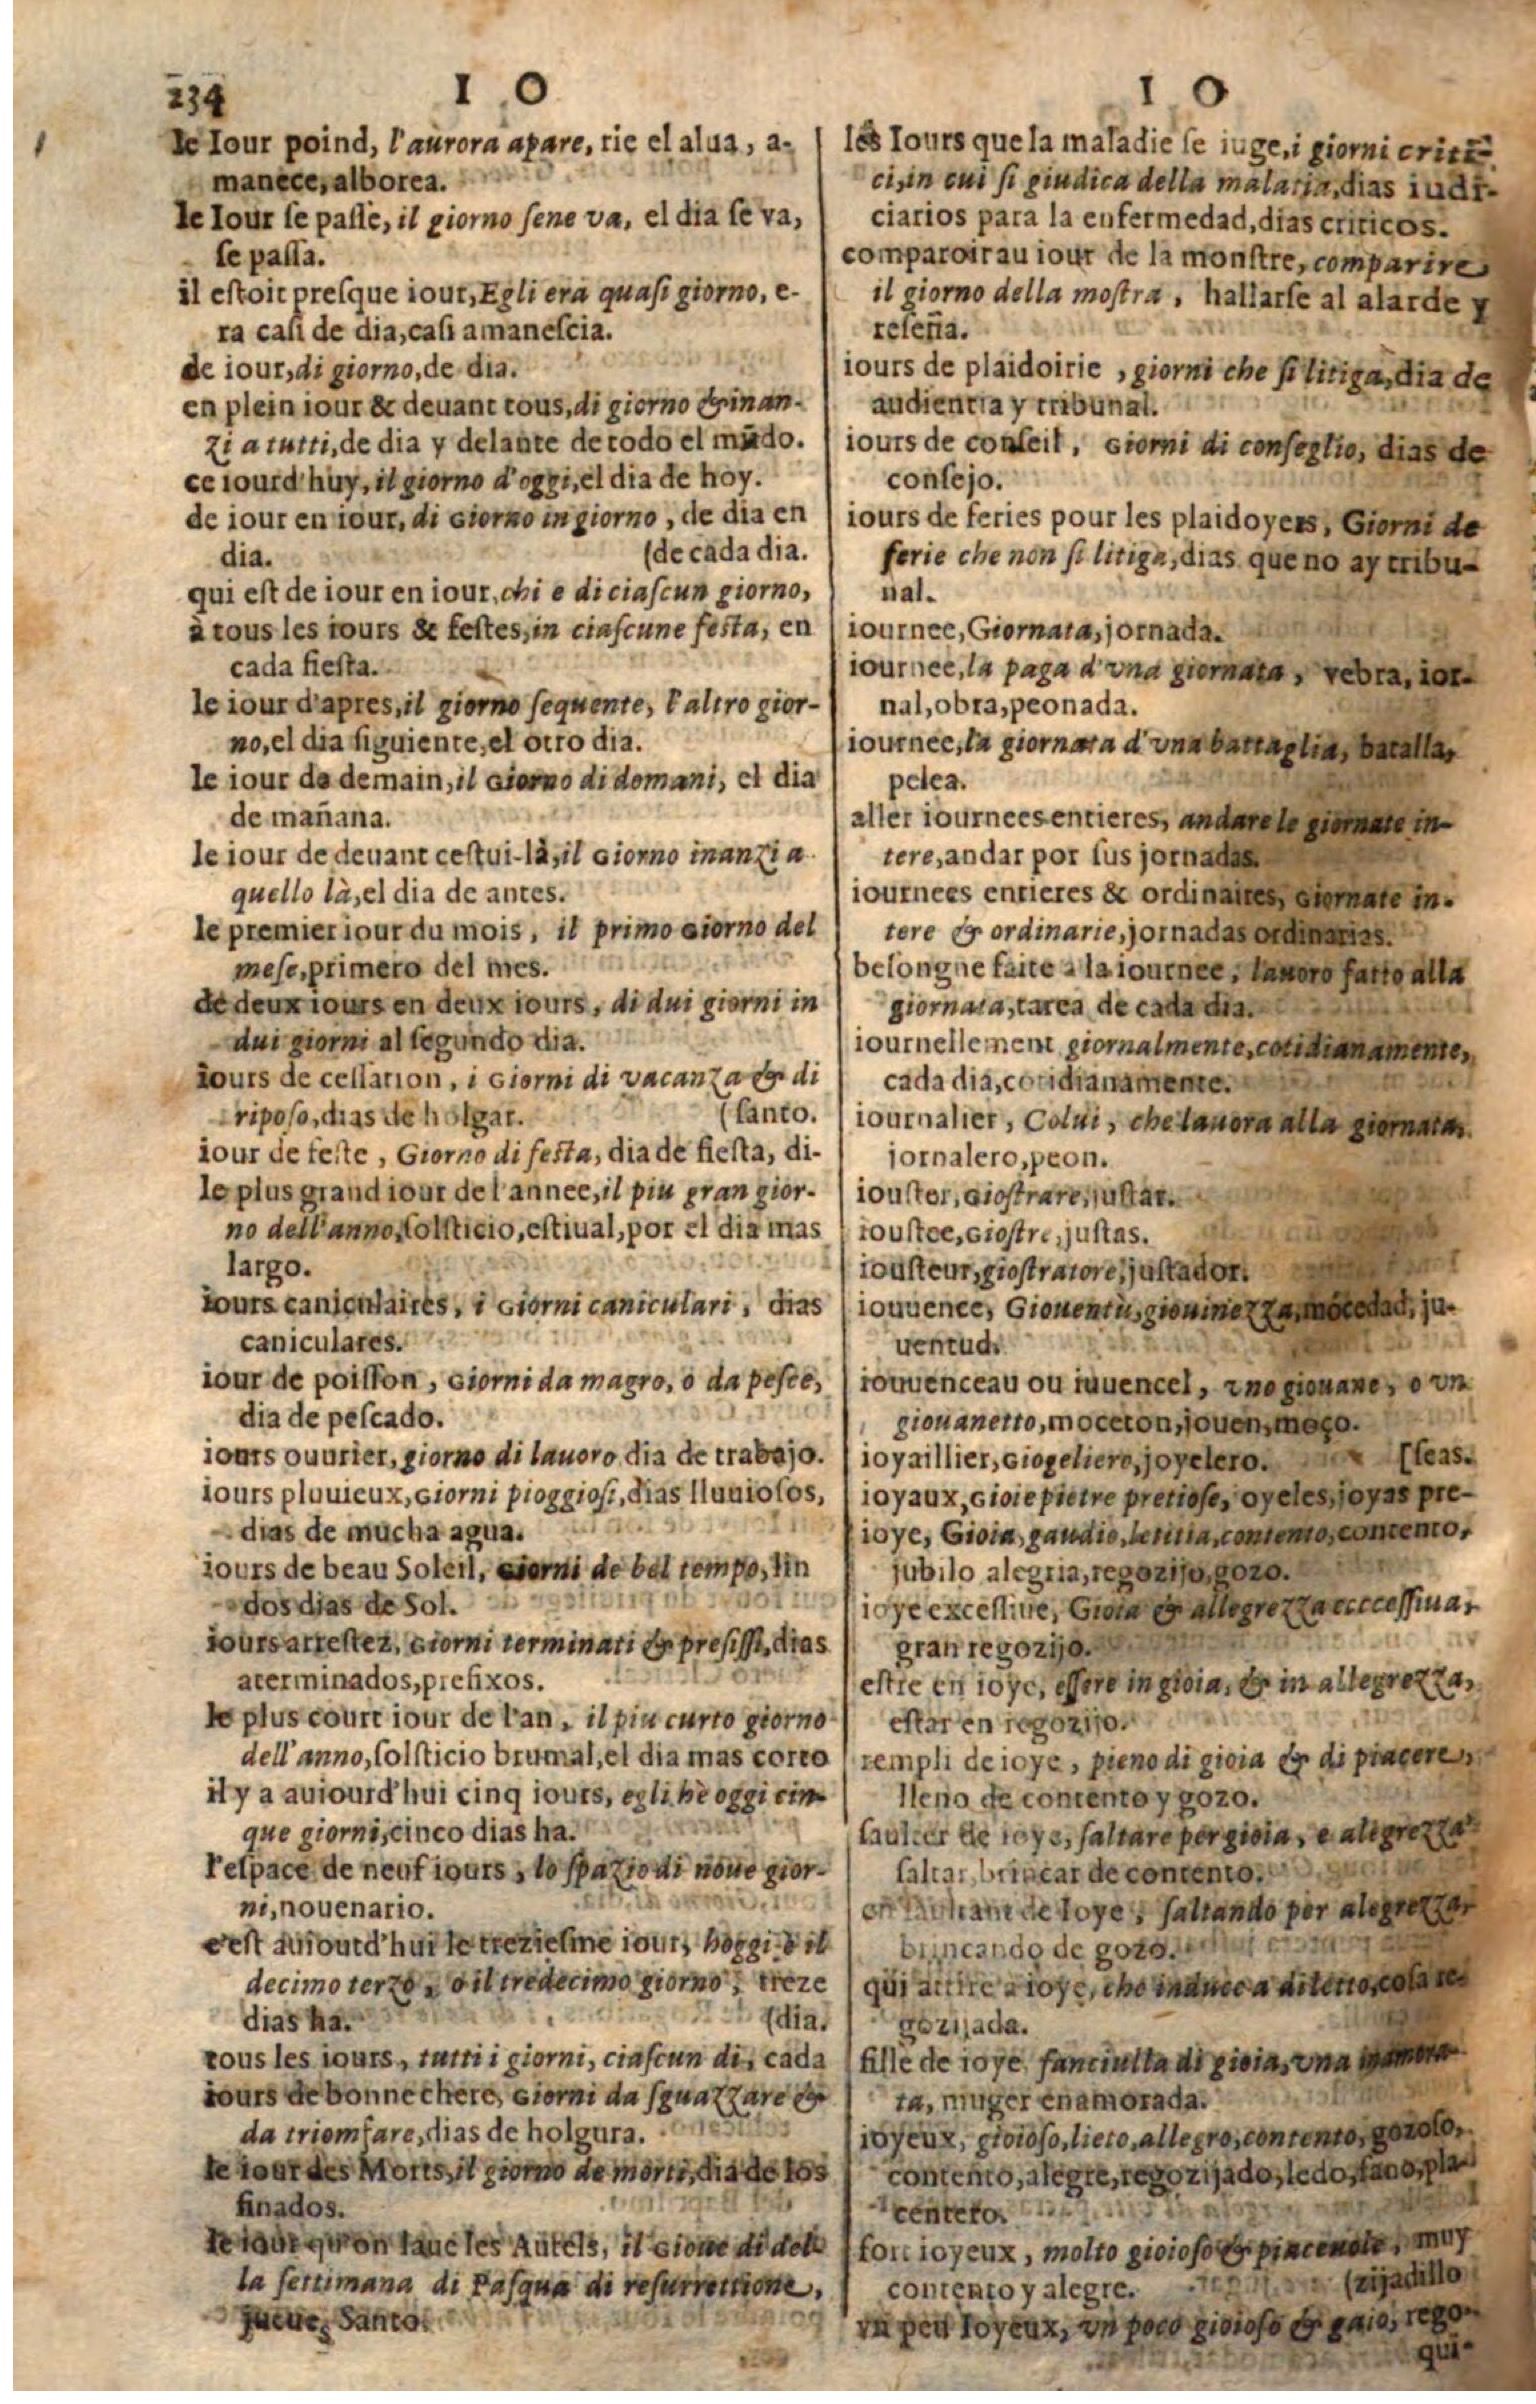 234
I O
le Iour poind, l'aurora apare, rie el alua, a-
manece, alborea.
le Iour se passe, il giorno sene va, el dia se va,
se passa.
il estoit presque iour, Egli era quasi giorno, e-
ra casi de dia, casi amanescia.
de iour, di giorno, de dia.
en plein iour & deuant tous, di giorno & inan-
zi a tutti, de dia y delante de todo el mũdo.
ce iourd'huy, il giorno d'oggi, el dia de hoy.
de iour en iour, di Giorno in giorno, de dia en
dia. (de cada dia.
qui est de iour en iour, chi e di ciascun giorno,
à tous les iours & festes, in ciascune festa, en
cada fiesta.
le iour d'apres, il giorno sequente, l'altro gior-
no, el dia siguiente, el otro dia.
le iour de demain, il Giorno di domani, el dia
de mañana.
le iour de deuant cestui-là, il Giorno inanzi a
quello là, el dia de antes.
le premier iour du mois, il primo Giorno del
mese, primero del mes.
de deux iours en deux iours, di dui giorni in
dui giorni al segundo dia.
iours de cessation, i Giorni di vacanza & di
riposo, dias de holgar. (santo.
iour de feste, Giorno di festa, dia de fiesta, di-
le plus grand iour de l'annee, il piu gran gior-
no dell'anno, solsticio, estiual, por el dia mas
largo.
iours caniculaires, i Giorni caniculari, dias
caniculares.
iour de poisson, Giorni da magro, o da pesce,
dia de pescado.
iours ouurier, giorno di lauoro dia de trabajo.
iours pluuieux, Giorni pioggiosi, dias lluuiosos,
dias de mucha agua.
iours de beau Soleil, Giorni de bel tempo, lin
dos dias de Sol.
iours arrestez, Giorni terminati & presissi, dias
aterminados, prefixos.
le plus court iour de l'an, il piu curto giorno
dell'anno, solsticio brumal, el dia mas corto
il y a auiourd'hui cinq iours, egli hè oggi cin-
que giorni, cinco dias ha.
l'espace de neuf iours, lo spazio di noue gior-
ni, nouenario.
c'est auiourd'hui le treziesme iour, hoggi è il
decimo terzo, o il tredecimo giorno, treze
dias ha. (dia.
tous les iours, tutti i giorni, ciascun di, cada
iours de bonne chere, Giorni da sguazzare &
da triomfare, dias de holgura.
le iour des Morts, il giorno de morti, dia de los
finados.
le iour qu'on laue les Autels, il Gioue di del-
la settimana di Pasqua di resurrettione,
jueues Santo.
I O
les Iours que la maladie se iuge, i giorni criti-
ci, in cui si giudica della malatia, dias iudi-
ciarios para la enfermedad, dias criticos.
comparoir au iour de la monstre, comparire
il giorno della mostra, hallarse al alarde y
reseña.
iours de plaidoirie, giorni che si litiga, dia de
audientia y tribunal.
iours de conseil, Giorni di conseglio, dias de
consejo.
iours de feries pour les plaidoyers, Giorni de
ferie che non si litiga, dias que no ay tribu-
nal.
iournee, Giornata, jornada.
iournee, la paga d'vna giornata, vebra, ior-
nal, obra, peonada.
iournee, la giornata d'vna battaglia, batalla,
pelea.
aller iournees entieres, andare le giornate in-
tere, andar por sus jornadas.
iournees entieres & ordinaires, Giornate in-
tere & ordinarie, jornadas ordinarias.
besongne faite a la iournee, lauoro fatto alla
giornata, tarea de cada dia.
iournellement giornalmente, cotidianamente,
cada dia, cotidianamente.
iournalier, Colui, che lauora alla giornata,
jornalero, peon.
iouster, Giostrare, justar.
ioustee, Giostre, justas.
iousteur, giostratore, justador.
iouuence, Giouentù, giouinezza, mocedad, ju-
uentud.
iouuenceau ou iuuencel, vno giouane, o vn
giouanetto, moceton, jouen, moço.
ioyaillier, Giogeliero, joyelero. [seas.
ioyaux, Gioie pietre pretiose, oyeles, joyas pre-
ioye, Gioia, gaudio, letitia, contento, contento,
jubilo alegria, regozijo, gozo.
ioye excessiue, Gioia & allegrezza eccessiua,
gran regozijo.
estre en ioye, essere in gioia, & in allegrezza,
estar en regozijo.
rempli de ioye, pieno di gioia & di piacere,
lleno de contento y gozo.
saulter de ioye, saltare per gioia, e alegrezza
saltar, brincar de contento.
en saultant de Ioye, saltando per alegrezza,
brincando de gozo.
qui attire a ioye, che induce a diletto, cosa re-
gozijada.
fille de ioye fanciulla di gioia, vna inamora-
ta, muger enamorada.
ioyeux, gioioso, lieto, allegro, contento, gozoso,
contento, alegre, regozijado, ledo, sano, pla-
centero.
fort ioyeux, molto gioioso & piaceuole, muy
contento y alegre. (zijadillo
vn peu Ioyeux, vn poco gioioso & gaio, rego-
qui-